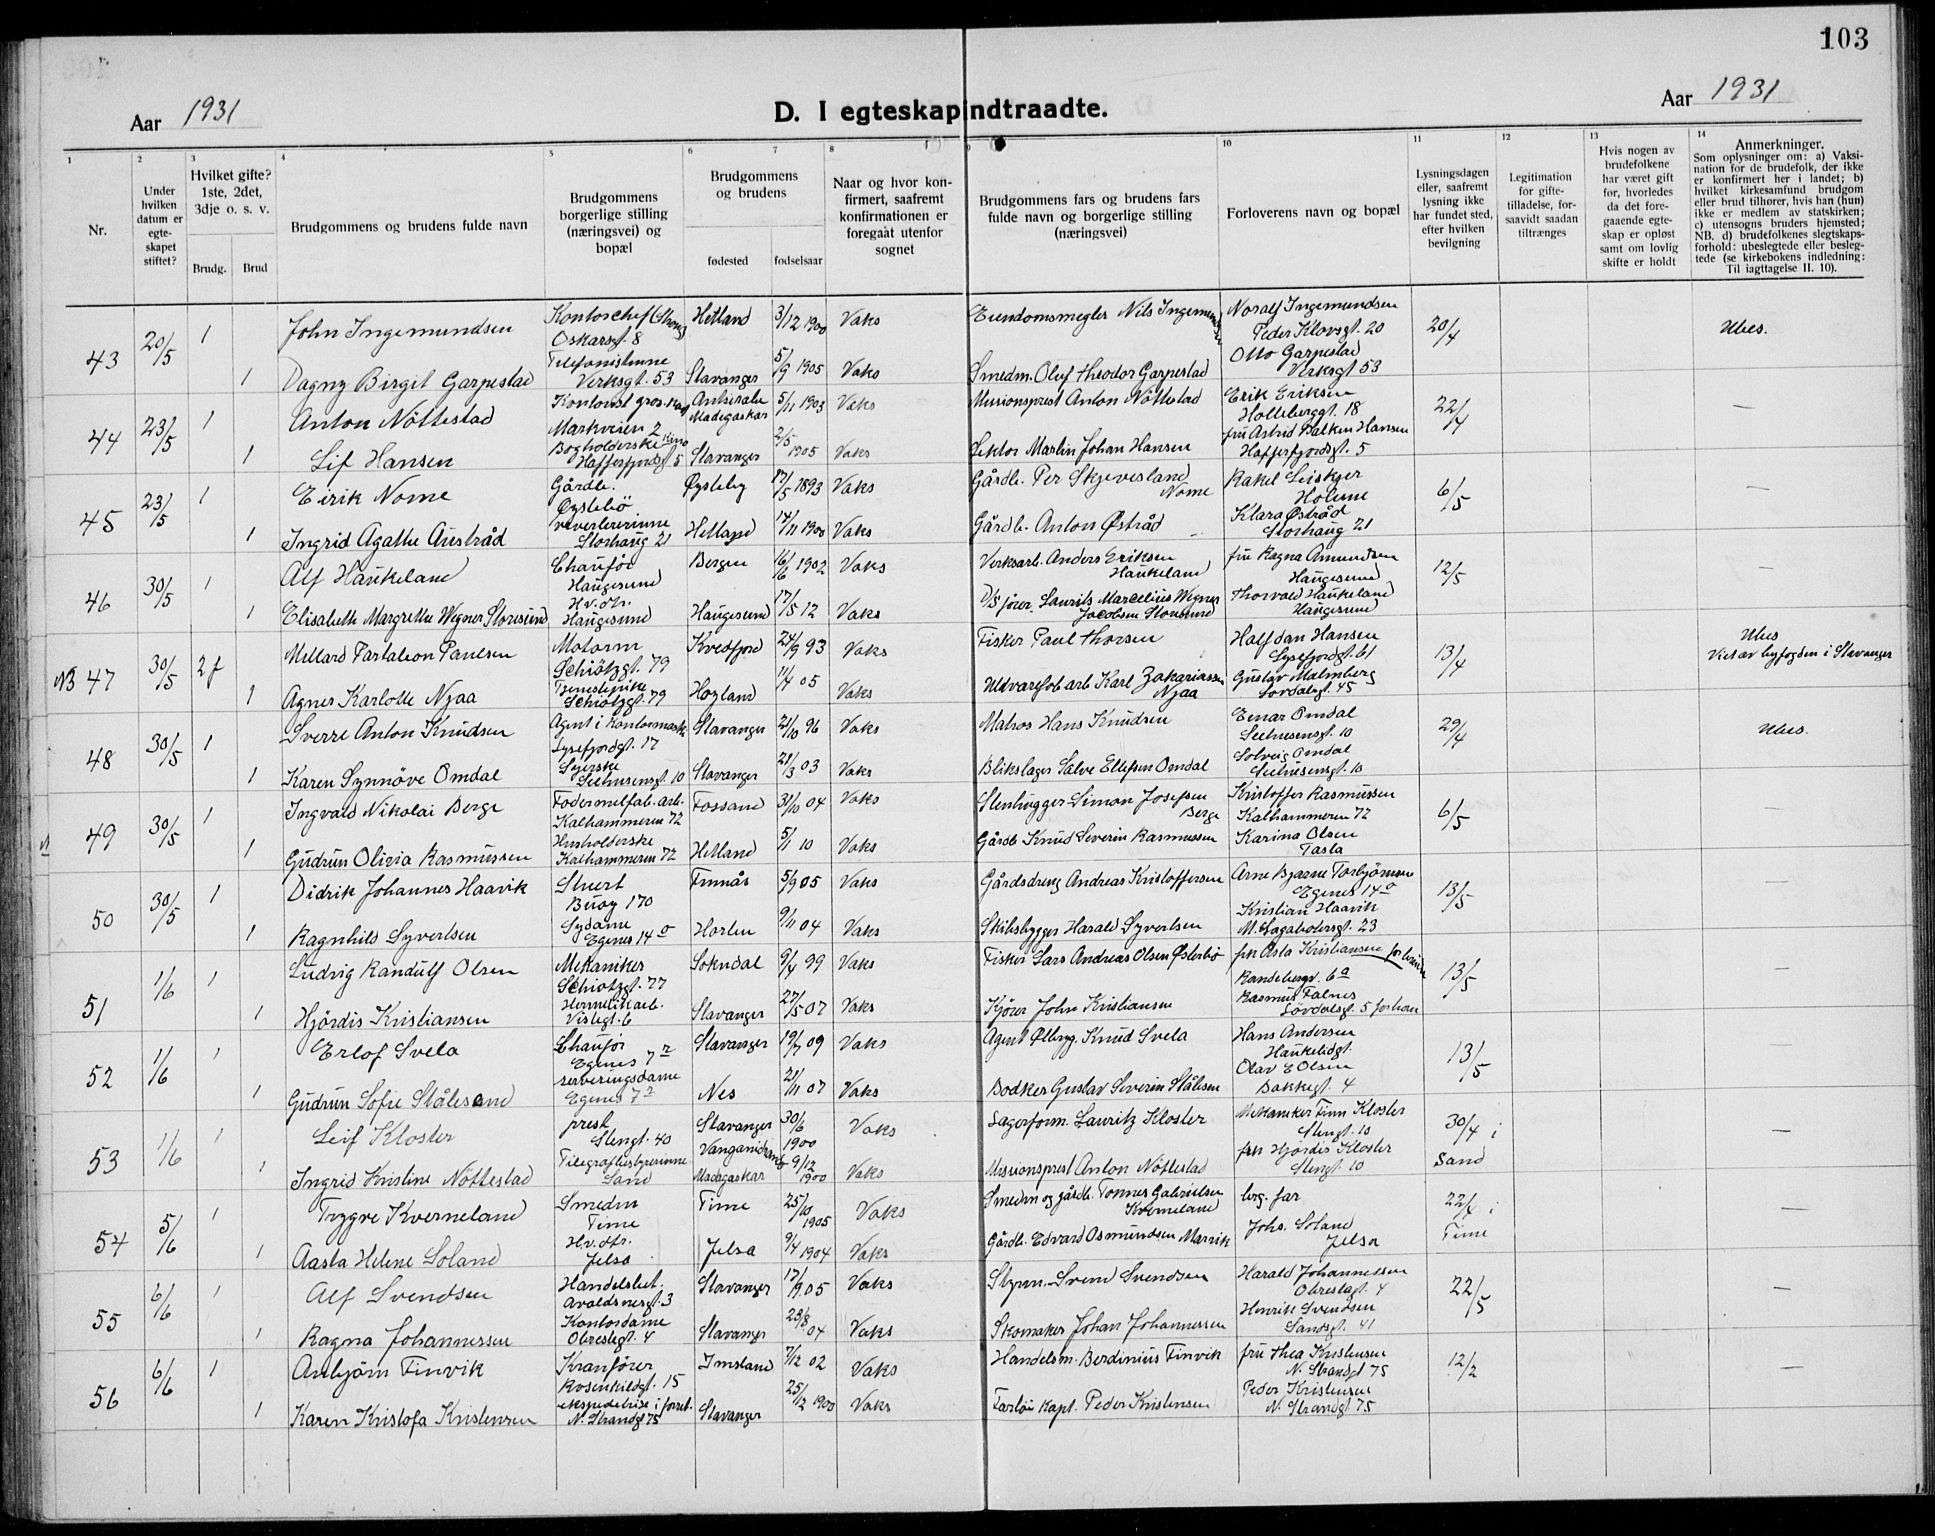 103
Aar 1931
D. I egteskap indtraadte.
Aar 1931
1
2
3
4
5
6
7
8
9
10
11
12
13
14
Nr.
Under hvilken datum er egte-skapet stiftet?
Hvilket gifte? 1ste, 2det, 3dje o. s. v.
Brudg.
Brud
Brudgommens og brudens fulde navn
Brudgommens borgerlige stilling (næringsvei) og bopæl
Brudgommens og brudens
fødested
fødselsaar
Naar og hvor kon-firmert, saafremt konfirmationen er foregaat utenfor sognet
Brudgommens fars og brudens fars fulde navn og borgerlige stilling (næringsvei)
Forloverens navn og bopæl
Lysningsdagen eller, saafremt lysning ikke har fundet sted, efter hvilken bevilgning
Legitimation for gifte-tilladelse, for-saavidt saadan tiltrænges
Hvis nogen av brudefolkene har været gift før, hvorledes da det fore-gaaende egte-skap er opløst samt om lovlig skifte er holdt
Anmerkninger.
Som oplysninger om: a) Vaksi-nation for de brudefolk, der ikke er konfirmert her i landet; b) hvilket kirkesamfund brudgom eller brud tilhører, hvis han (hun) ikke er medlem av statskirken; c) utensogns bruders hjemsted; NB. d) brudefolkenes slegtskaps-forhold: ubeslegtede eller besleg-tede (se kirkebokens indledning: Til iagttagelse II. 10).
43 20/5 1 John Ingemundsen Kontorchef Oskarsgt. 8 Hetland 3/12 1900 Vaks Eiendomsmegler Nils Ingemundsen Noralf Ingemundsen Peder Klovsgt. 20 20/4 Ubes.
1 Dagny Birgit Garpestad Telefonistinne Verksgt. 53 Stavanger 5/9 1905 Vaks Smedm. Oluf Theodor Garpestad Otto Garpestad Verksgt 53
44 23/5 1 Anton Nöttestad Kontorist Markveien 2 Antsirabe Madagaskar 5/11 1903 Vaks Missionsprest Anton Nöttestad Erik Eriksen Holleberggt. 18 22/4 —
1 Lif Hansen Bogholderske Kino Hafrsfjordsgt 5 Stavanger 2/5 1905 Vaks Lektor Martin Johan Hansen fru Astrid Balken Hansen Hafrsfjordsgt. 5
45 23/5 1 Eirik Nome Gårdb. Øyslebö Øysleby 17/5 1893 Vaks Gårdb. Per Skjevesland Nome Rakel Leiskjer Holume 6/5 —
1 Ingrid Agathe Austråd veverlererinne Storhaug 21 Hetland 14/11 1900 Vaks Gårdb. Anton Østråd Klara Østråd Storhaug 21
46 30/5 1 Alf Haukeland Chauför Haugesund Bergen 16/6 1902 Vaks Verksarb. Anders Eriksen Haukeland fru Ragna Amundsen Haugesund 12/5 —
1 Elisabeth Margrethe Wegner Storesund Hv. dtr. Haugesund Haugesund 17/5 12 Vaks D/S förer. Laurits Marcelius Wegner Jacobsen Storesund Thorvald Haukeland Haugesund
NB 47 30/5 2f Millard Partaleon Paulsen Motorm Schiötzgt. 79 Kvedfjord 24/9 93 Vaks Fisker Paul Thorsen Halfdan Hansen Lysefjordgt. 61 13/4 Ubes Viet av byfogden i Stavanger
1 Agnes Karlotte Njaa Tjenestepike Schiötzgt. 79 Hogland 11/4 05 Vaks Uldvarefab arb Karl Zakariassen Njaa Gustav Malmberg Lovdalsgt. 45
48 30/5 1 Sverre Anton Knudsen Agent i Kontormask Lysefjordgt. 17 Stavanger 21/10 96 Vaks Matros Hans Knudsen Einar Omdal Seehusensgt. 10 29/4 Ubes.
1 Karen Synnöve Omdal Syerske Seehusensgt. 10 Stavanger 21/3 03 Vaks Blikslager Salve Ellefsen Omdal Solveig Omdal Seehusensgt. 10
49 30/5 1 Ingvald Nikolai Berge Fodermelfab. arb. Kalhammeren 72 Fossand 31/10 04 Vaks Stenhugger Simon Josefsen Berge Kristoffer Rasmussen Kalhammeren 72 6/5 —
1 Gudrun Olivia Rasmussen Husholderske Kalhammeren 72 Hetland 5/1 10 Vaks Gårdb Knud Severin Rasmussen Karina Olsen Tasta
50 30/5 1 Didrik Johannes Haavik Stuert Buøy 170 Finnås 5/9 05 Vaks Gårdsdreng Andreas Kristoffersen Arne Bjarne Torbjörnsen Egenes 14 13/5 —
1 Ragnhild Syvertsen Sydame Egenes 14 Horten 9/11 04 Vaks Skibsbygger Harald Syvertsen Kristian Haavik M. Lagabotersgt. 23
51 1/6 1 Ludvig Randulf Olsen Mekaniker Schiotzgt. 77 Sokndal 9/4 99 Vaks Fisker Lars Andreas Olsen Østebö frk Asta Kristiansen for bruden Randabergv. 6a 13/5 —
1 Hjördis Kristiansen Hermetikarb. Vistegt. 6 Stavanger 27/5 07 Vaks Kjörer John Kristiansen Rasmus Falnes Lövdalsgt. 5 for ham
52 1/6 1 Erlof Svela Chauför Egenes 7 Stavanger 19/7 09 Vaks Agent Ølbryg. Knud Svela Hans Andersen Haukelidgt. 13/5 —
1 Gudrun Sofie Ståhsand serveringsdame Egenes 7 Nes 21/11 07 Vaks Bodker Gustav Severin Stålesen Olav E Olsen Bakkegt. 4
53 1/6 1 Leif Kloster prest Stengt. 40 Stavanger 30/6 1900 Vaks Lagerform. Lauritz Kloster Mekaniker Finn Kloster Stengt. 10 30/4 i Sand —
1 Ingrid Kristine Nöttestad Telegrafbestyrerinne Sand Madagaskar 9/12 1900 Vaks Missionsprest Anton Nöttestad frk Hjördis Kloster Stengt. 10
54 5/6 1 Trygve Kverneland Smedm Time Time 25/10 1905 Vaks Smedm og gårdb. Tonnes Gabrielsen Kverneland brg. far 22/4 i Time —
1 Aasta Helene Soland Hv. dtr. Jelsa Jelsa 9/4 1904 Vaks Gårdb. Edvard Osmundsen Marvik Johs. Soland Jelsa
55 6/6 1 Alf Svendsen Handelsbet. Avaldsnesgt. 3 Stavanger 17/9 05 Vaks Styrm. Svend Svendsen Harald Johannessen Obrestgt. 4 22/5 —
1 Ragna Johannessen Kontordame Obrestgt. 4 Stavanger 23/8 04 Vaks Skomaker Johan Johannessen Henrik Svendsen Sandsgt. 41
56 6/6 1 Anbjörn Finvik Kranförer Rosenkildgt. 15 Imsland 7/12 02 Vaks Handelsm. Berdinius Finvik fru Thea Kristensen N. Strandgt 75 12/2 —
1 Karen Kristofa Kristensen ekspeditrise i forret. N. Strandgt 75 Stavanger 25/12 1900 Vaks Fartöi kapt. Peder Kristensen Peder Kristensen N. Strandgt 75